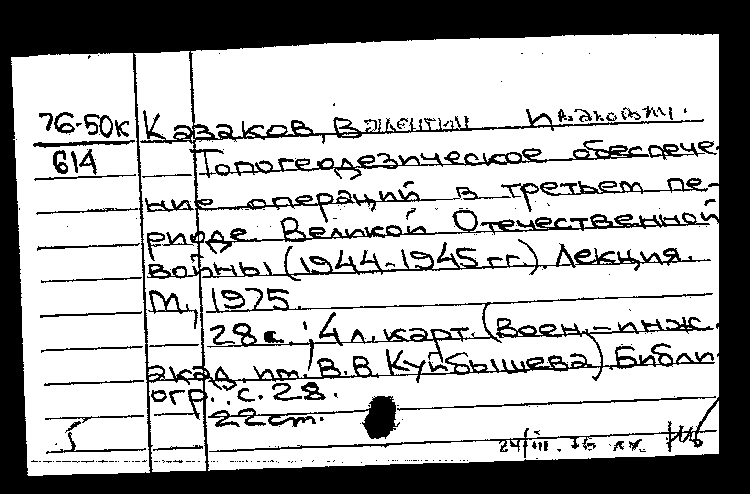 76-50к Казаков, Валентин
614 Топогеодезическое обеспече-
ние операций в третьем пе-
риоде Великой Отечественной
войны (1944-1945 гг.). Лекция.
М., 1975.
28 с.; 4 л. карт. (Воен.-инж.
акад. им. В.В. Куйбышева). Библи-
огр.: с. 28.
22 см.
5
24/III. 76